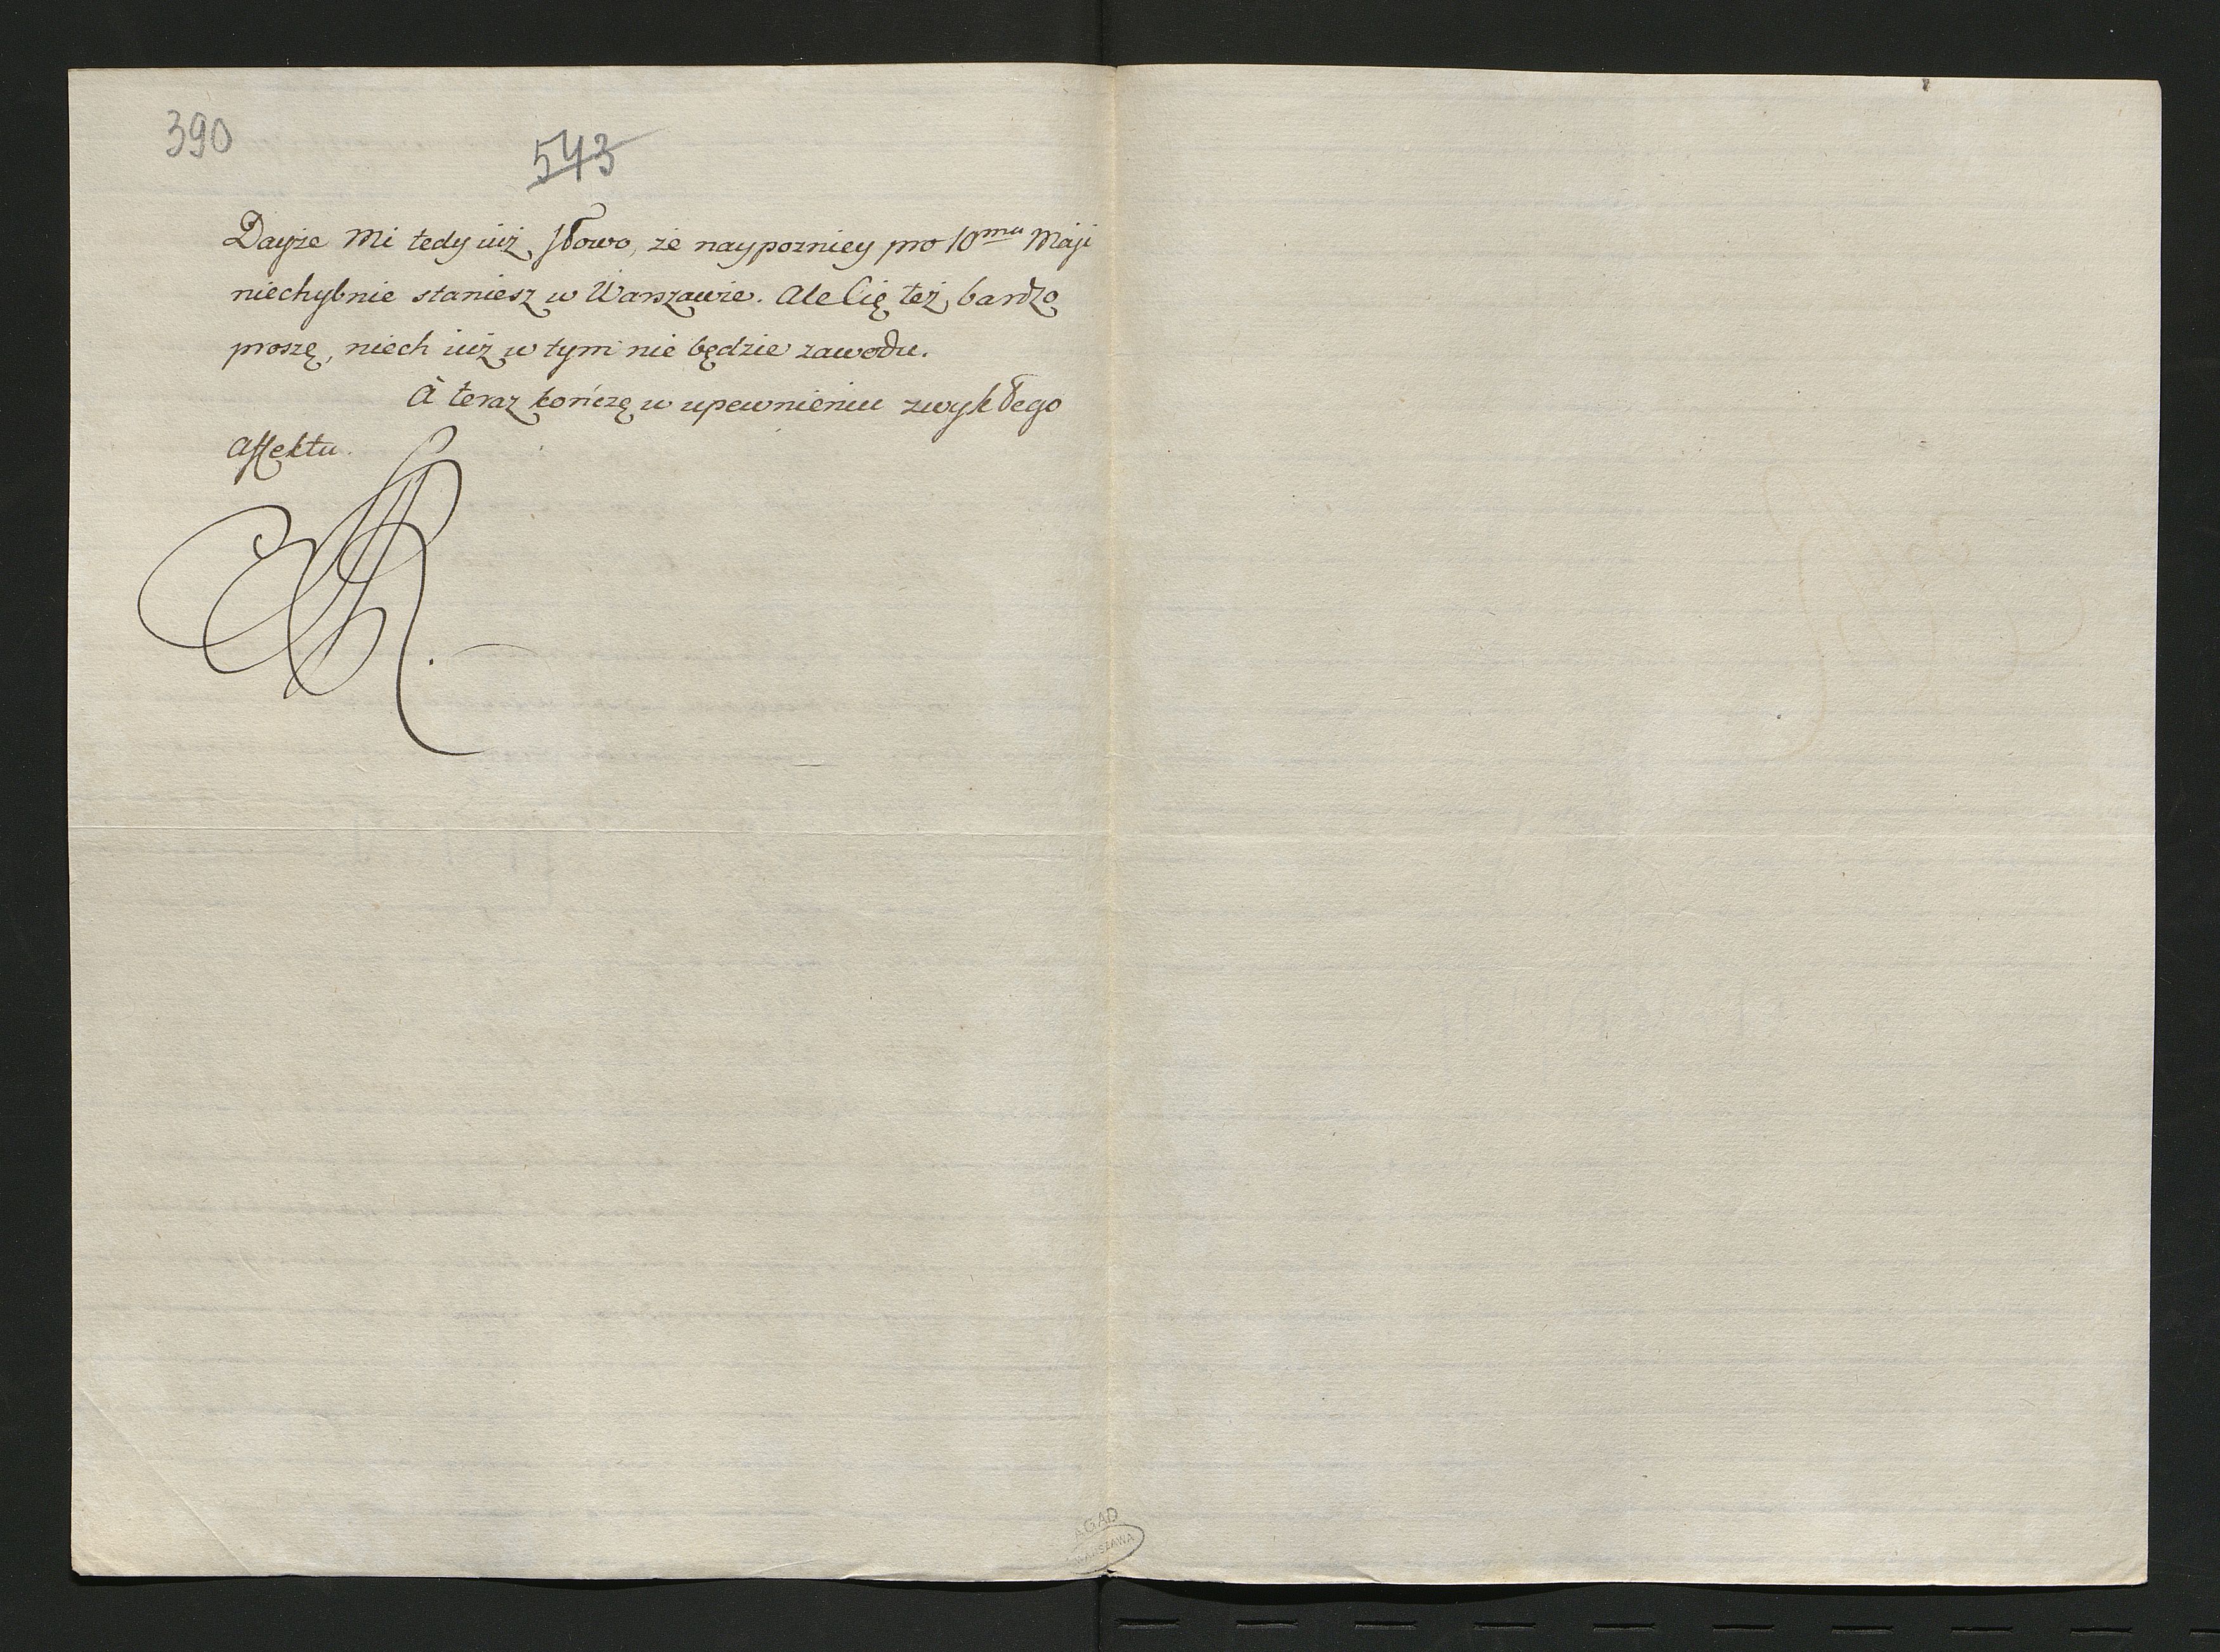 390
543
Dayże Mi tedy iuż Słowo, że naypozniey pro 10ma Maji
niechybnie staniesz w Warszawie. Ale Cię też bardzo
proszę, niech iuż w tym nie będzie zawodu.
A teraz kończę w upewnieniu zwykłego
Affektu.
SAR.
AGAD
WARSZAWA